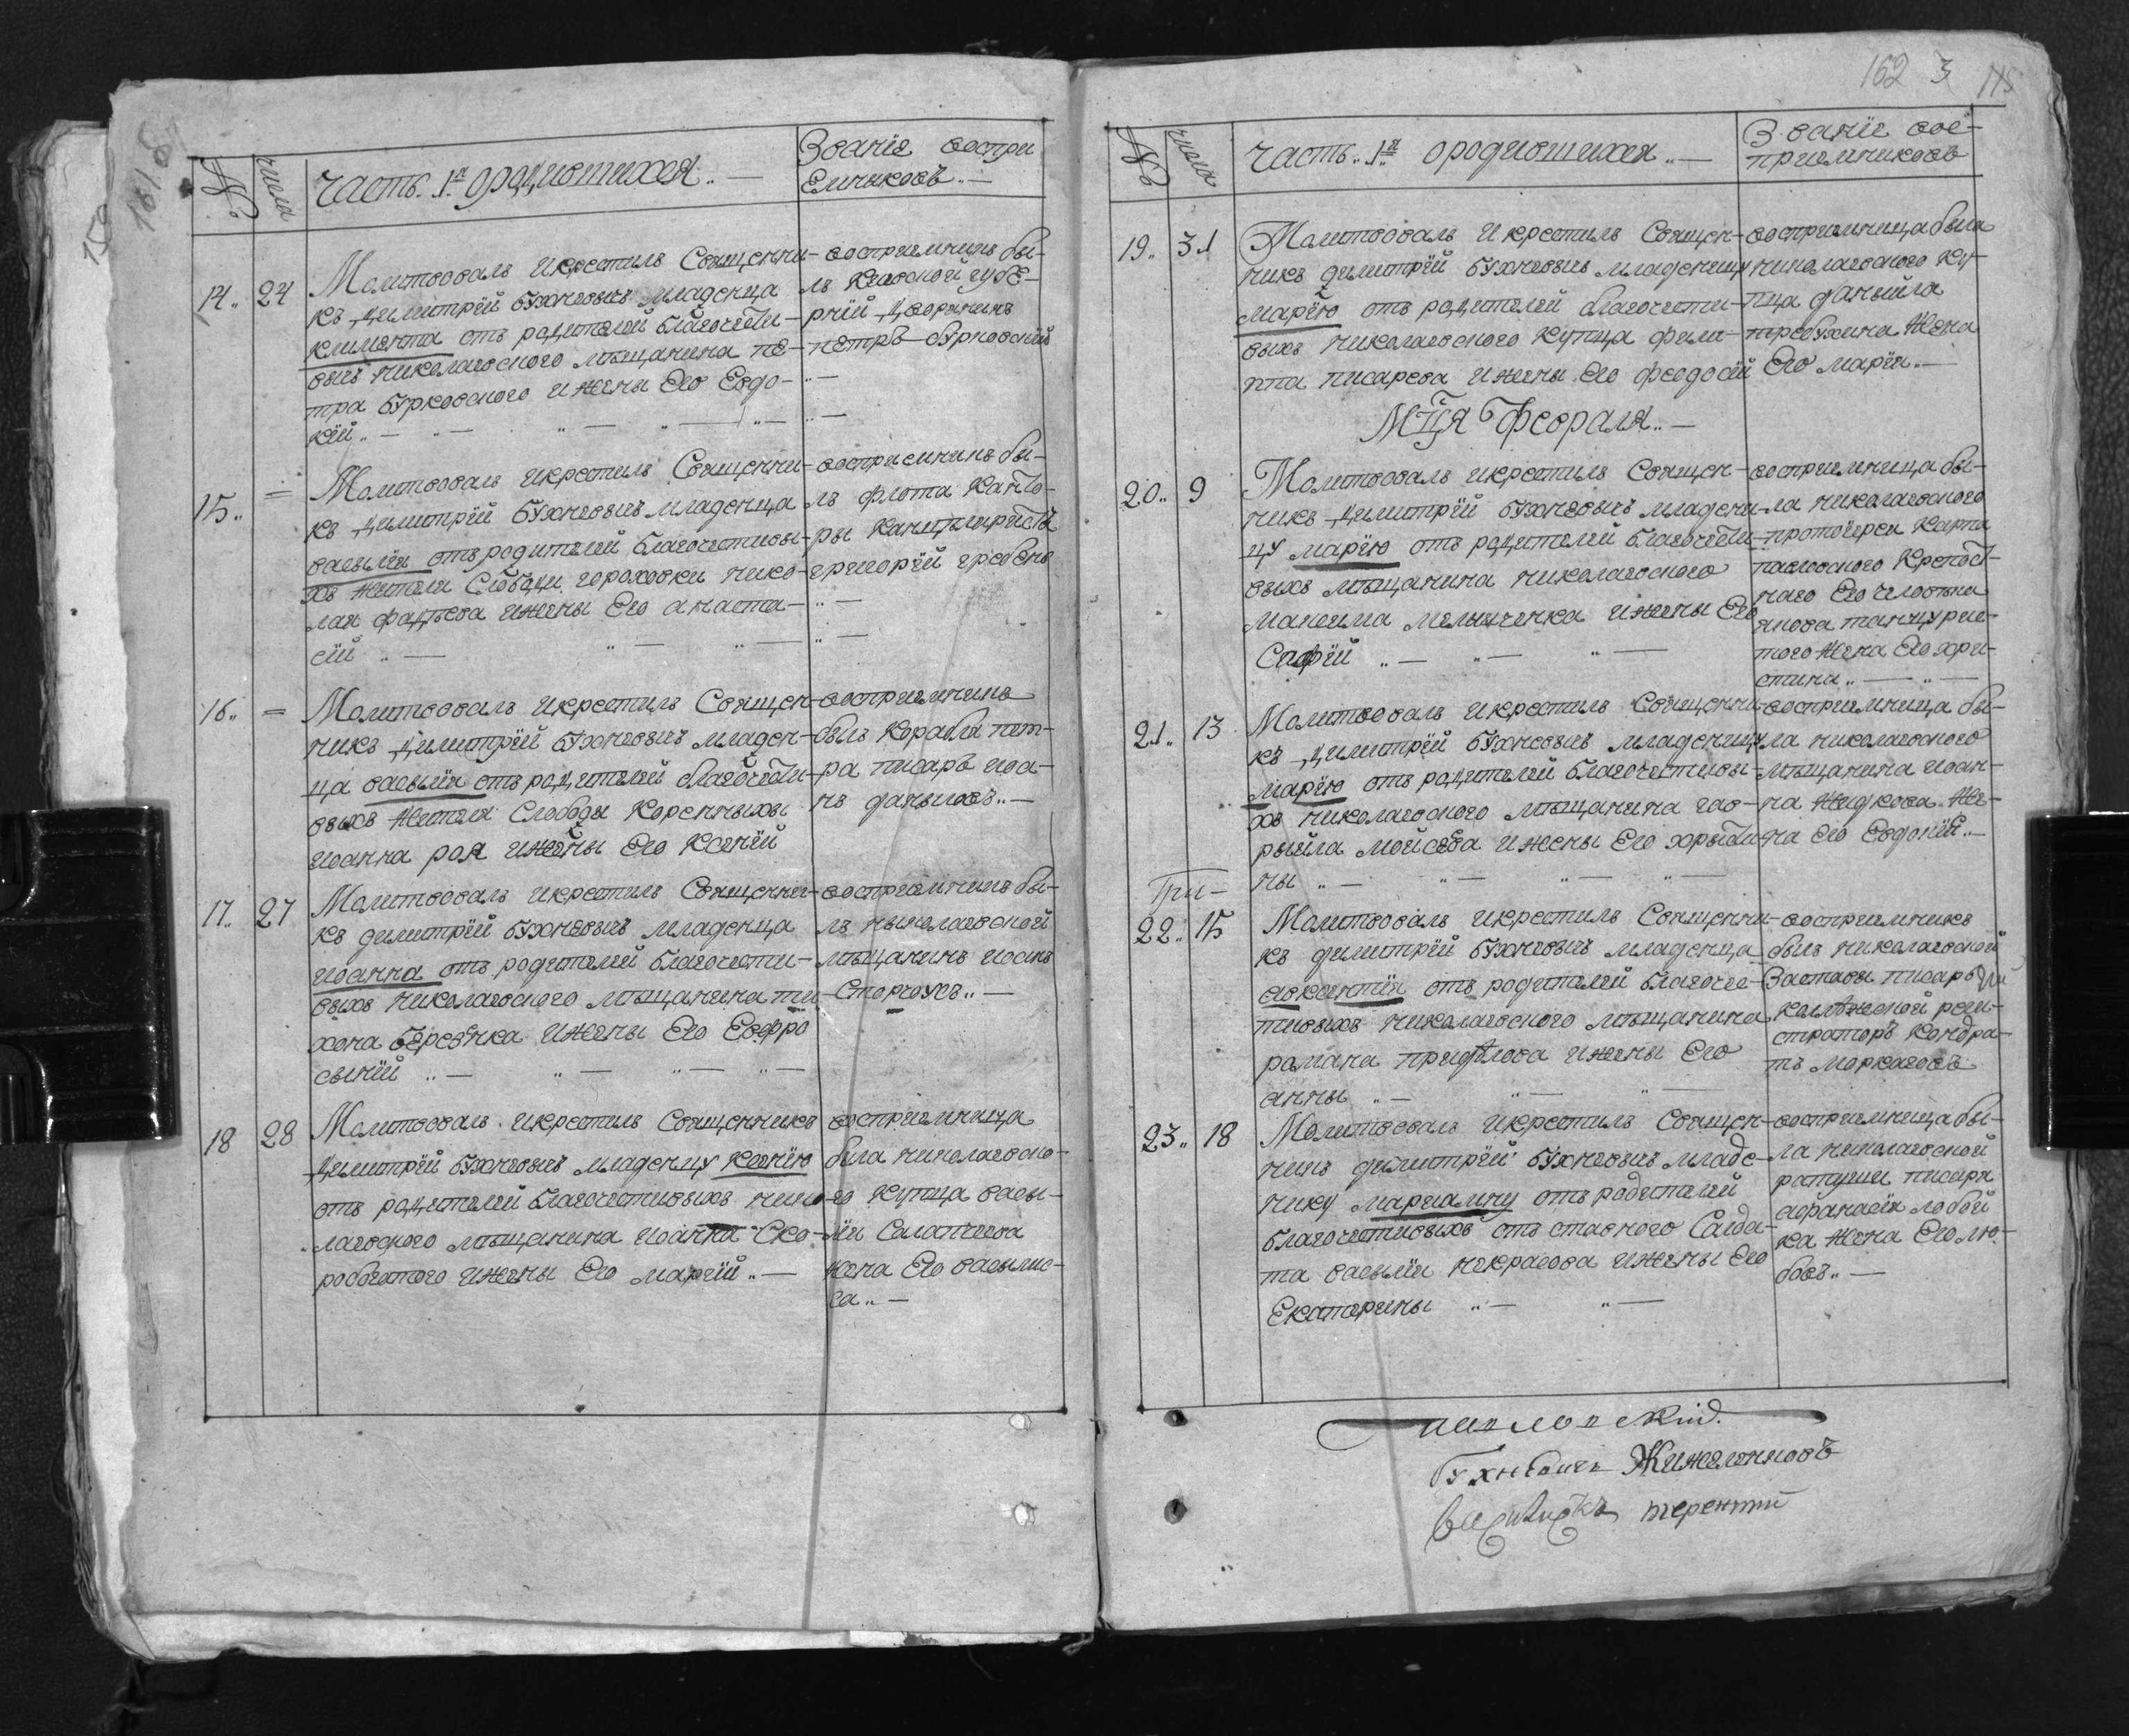 161 об
159
№
числа
часть. 1я ородившихся.. —
Звание воспри
емныковъ.. —
14.. 24
Молитвовалъ икрестилъ Священни-
къ Димитрїй Бухнѣевичъ младенца
климента отъ родителей благочести-
выхъ николаевского мѣщанина пе-
тра Бурковского ижены Его Евдо-
кїй.. —
восприемникъ бы-
лъ Киевской губе-
рнїй Дворянинъ
петръ бурковский
15.. =
Молитвовалъ икрестилъ Священни-
къ Димитрїй Бухнѣевичъ младенца
васылїя отъ родителей благочестивы-
хъ жителя Слободи гороховки нико-
лая фадѣева ижены Его анаста-
сїй .. —
восприемникъ бы-
лъ флота Канто-
ры Канцеляристъ
григорїй гребень
16.. =
Молитвовалъ икрестилъ Священ-
никъ Димитрїй Бухнѣевичъ младен-
ца васылїя отъ родителей благочести-
выхъ жителя Слободы Коренныхы
иоанна роя ижены Его Ксенїй
восприемникъ
былъ Корабля пет-
ра писарь ива-
нъ даныловъ.. —
17.. 27
Молитвовалъ икрестилъ Священни-
къ димитрїй Бухнѣевичъ младенца
иоанна отъ родителей благочести-
выхъ николаевского мѣщанина ти-
хона Березнка ижены Его Евфро
сынїй .. —
восприемникъ бы-
лъ ныколаевской
мѣщанинъ иоанъ
Сторчоусъ.. —
18 28
Молитвовалъ икрестилъ Священникъ
Димитрїй Бухнѣевичъ младенцу Ксенїю
отъ родителей благочестивыхъ нико-
лаевского мѣщанина иоанна Ско-
робогатого ижены Его марїй.. —
восприемница
была николаевско-
го Купца васы-
лїя Салатѣева
жена Его васылис-
са.. —
162 3 115
№
числа
часть.. 1я ородившихся.. —
Звание вос-
приемниковъ
19.. 31
Молитвовалъ икрестилъ Священ-
никъ димитрїй Бухнѣевичъ младеницу
марїю отъ родителей благочести-
выхъ николаевского Купца фили-
ппа писарева ижены Его феодосїй
восприемница была
николаевского Ку-
пца даныила
требухина жена
Его марїя.. —
Мца Февраля.. —
20.. 9
Молитвовалъ икрестилъ Священ-
никъ Димитрїй Бухнѣевичъ младени-
цу марїю отъ родителей благочести-
выхъ мѣщанина николаевского
максима мельниченка ижены Его
Софїй .. —
восприемница бы-
ла николаевского
протоїерея Карпа
павловского Крепост-
наго Его человѣка
якова танцурис-
того жена Его хри-
стина.. —
21.. 13
Молитвовалъ икрестилъ Священни-
къ Димитрїй Бухнѣевичъ младеницу
марїю отъ родителей благочестивы-
хъ николаевского мѣщанина гав-
рыйла мойсѣева ижены Его хрысти-
ны .. —
восприемница бы-
ла николаевского
мѣщанина иоан-
на жидкова же-
на Его Евдокїя.. —
При-
22.. 15
Молитвовалъ икрестилъ Священни-
къ димитрїй Бухнѣевичъ младенца
авксентїя отъ родителей благоче-
стивыхъ николаевского мѣщанина
романа ижены Его
анны .. —
восприемникъ
былъ николаевской
Заставы писарь
колѣжской реги-
страторъ Кондра-
тъ
23.. 18
Молитвовалъ икрестилъ Священ-
никъ димитрїй Бухнѣевичъ младе-
ницу марианну отъ родителей
благочестивыхъ отъ ставного Салда-
та васылїя некрасова ижены Его
Екатерины .. —
восприемница бы-
ла николаевской
ратуши писаря
афанасїя лобой
ка жена Его лю-
бовъ.. —
Бухнѣвичъ Жижеленковъ
терентий